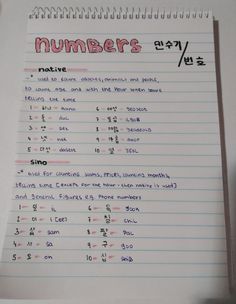 numbers 민수기/번호
native
* used to count objects, animals and people,
to count age and with the hour when
telling the time
1 - 하나 - hana 6 - 여섯 - yeoseos
2 - 둘 - dul 7 - 일곱 - ilgob
3 - 셋 - set 8 - 여덟 - yeodeolb
4 - 넷 - net 9 - 아홉 - ahob
5 - 다섯 - daseot 10 - 열 - yeol
sino
* used for counting sums, prices, counting months,
telling time (except for the hour - then native is used)
and general figures e.g. phone numbers
1 - 일 - il 6 - 육 - yook
2 - 이 - i (ee) 7 - 칠 - chil
3 - 삼 - sam 8 - 팔 - pal
4 - 사 - sa 9 - 구 - goo
5 - 오 - oh 10 - 십 - ship